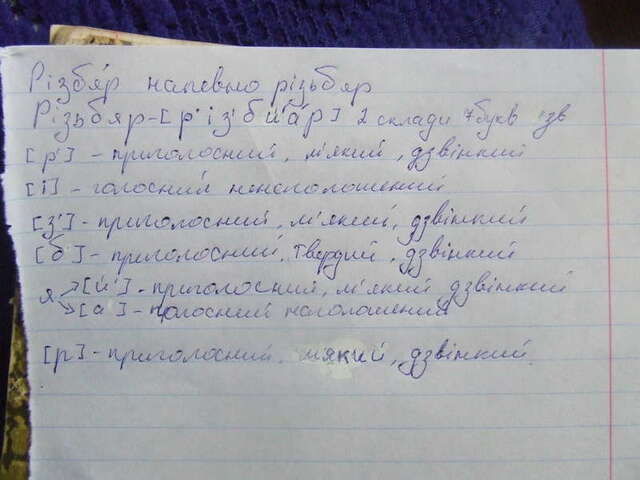 Різбя́р напевно різьбяр
Різьбяр-[р' і з' б й' а́ р] 2 склади 7букв 7зв
[р'] - приголосний, м'який, дзвінкий
[і] - голосний ненаголошений
[з'] - приголосний, м'який, дзвінкий
[б] - приголосний, твердий, дзвінкий
я → [й'] - приголосний, м'який дзвінкий
→ [а] - голосний наголошений
[р] - приголосний, м'який, дзвінкий